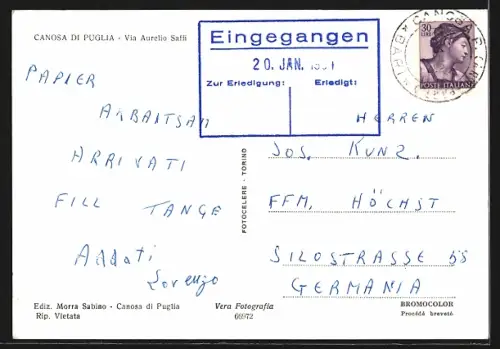 CANOSA DI PUGLIA - Via Aurelio Saffi
PAPIER
ARBAITSAM
ARRIVATI
FILL TANGE
Addati
Lorenzo
Eingegangen
20. JAN.
Zur Erledigung: Erledigt:
30
LIRE
POSTE ITALIANE
CANOSA
HERREN
JOS. KUNZ.
FFM. HÖCHST
SILOSTRASSE 55
GERMANIA
FOTOCELERE - TORINO
Ediz. Morra Sabino - Canosa di Puglia
Rip. Vietata
Vera Fotografia
66972
BROMOCOLOR
Procédé breveté